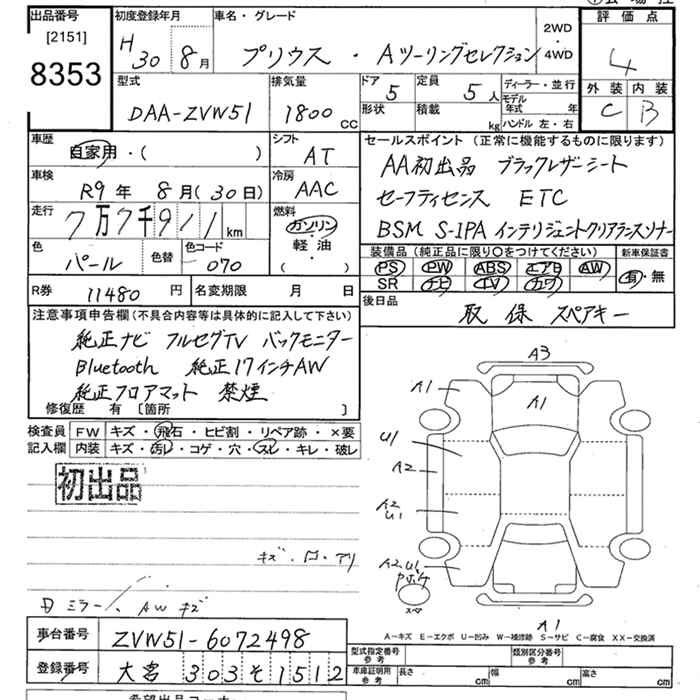 出品番号
[2151]
8353
初度登録年月
H30年8月
車名・グレード
プリウス ・ Aツーリングセレクション
2WD
・
4WD
評価点
4
外装 内装
C B
型式
DAA-ZVW51
排気量
1800 CC
ドア
5
定員
5人
ディーラー・並行
モデル年式 年
形状
積載 kg
ハンドル 左・右
車歴
自家用・( )
シフト
AT
セールスポイント (正常に機能するものに限ります)
AA初出品 ブラックレザーシート
セーフティセンス ETC
BSM S-IPA インテリジェントクリアランスソナー
車検
R9年8月(30日)
冷房
AAC
走行
7万7千911km
燃料
ガソリン
・
軽油
( )
色
パール
色替
色コード
070
装備品 (純正品に限り○をつけてください)
PS PW ABS エアB AW
SR ナビ TV カワ
新車保証書
有・無
R券 11480円
名変期限 月 日
後日品
取 保 スペアキー
注意事項申告欄(不具合内容等は具体的に記入して下さい)
純正ナビ フルセグTV バックモニター
Bluetooth 純正17インチAW
純正フロアマット 禁煙
修復歴 有 [箇所 ]
検査員
記入欄
FW キズ・飛石・ヒビ割・リペア跡・×要
内装 キズ・汚レ・コゲ・穴・スレ・キレ・破レ
初出品
A3
A1
A1
U1
A2
A2
U1
A2.U1
スペア
A1
ミラー、AWキズ
A-キズ E-エクボ U-凹み W-補修跡 S-サビ C-腐食 XX-交換済
車台番号 ZVW51-6072498
登録番号 大宮 303 そ 1512
型式指定番号
参考
類別区分番号
参考
車庫証明用
参考
長さ cm
幅 cm
高さ cm